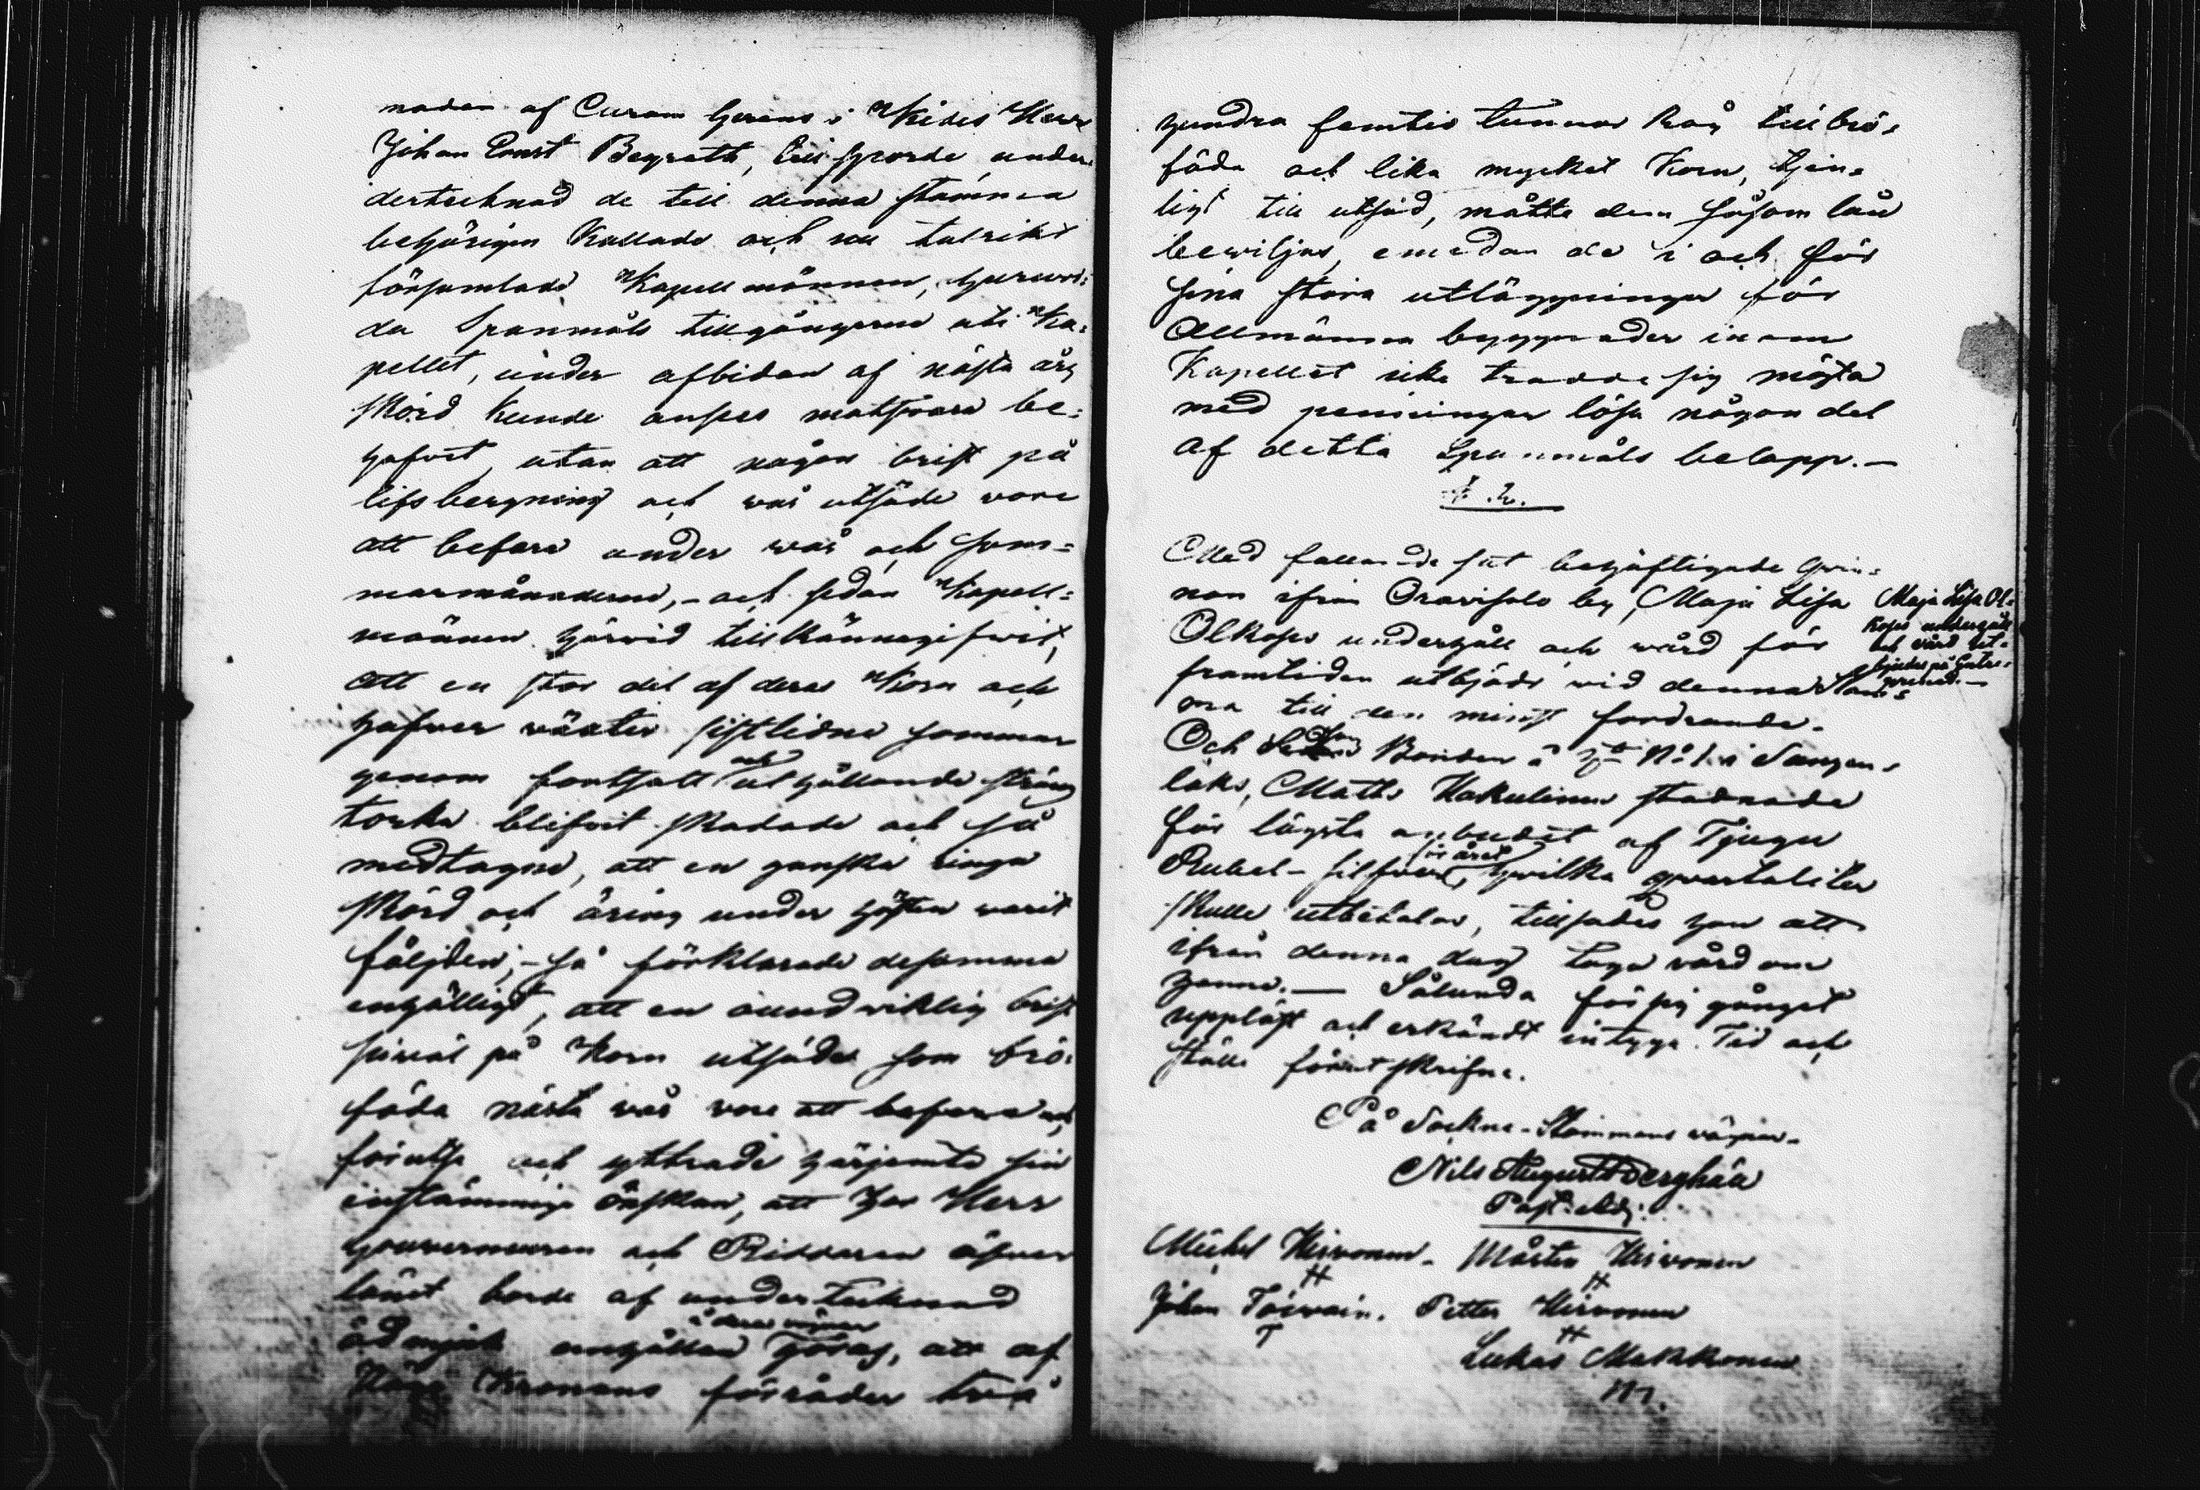 naden af Curam Gerens i Kides Herr
Johan Ernst Bergroth, tillsporde under
dertecknad de till denna stämma
behörigen Kallade och nu talrikt
församlade Kapellmännen, huruvi-
da Spanmåls tillgångarne uti Ka-
pellet, under afbidan af nästa års
skörd kunde anses motsvara be-
hofvet, utan att någon brist på
lifsbergning och vår utsäde vore
att befara under vår och som-
marmånaderne, - och sedan Kapell-
männen härvid tillkännagifvit,
att en stor del af deras Korn och
hafver växter sistlidne sommar
genom fortsatt och uthållande sträng
torka blifvit skadade och så
medtagne, att en ganska ringa
skörd och äring under hösten varit
följden, - så förklarade desamma
enhälligt, att en oundviklig brist
såväl på Korn utsäde som brö-
föda nästa vår vore att befara och
förutse och yttrade härjemte sin
enstämmiga önskan, att hos Herr
Gouverneuren och Riddaren öfver
länet borde af undertecknad
ödmjuk anhållan å deras vägnar göras, att af
Höga Kronans förråder två
hundra femtio tunnor Råg till brö-
föda och lika mycket Korn, tjen-
ligt till utsäd, måtte dem såsom lån
beviljas, emedan de i och för
sina stora utläggningar för
Allmänna byggnader inom
Kapellet icke trodde sig mägta
med penningar lösa någon del
af detta Spannmåls belopp. -
§ 2.
Med fallande sot behäftigade Qvin-
nan ifrån Oravisalo by, Maja Lisa
Olkoses underhåll och vård för
framtiden utbjöds vid denna Stäm-
ma till den minst fordrande.
Och Sedan Bonden å No 1 i Sangen-
laks, Matts Hakulinen stadnade
för lägsta anbudet af Tjugu
Rubel - silfver för året, hvilka qvartaliter
skulle utbetalas, tillsades han att
ifrån denna dag taga vård om
henne. — Sålunda för sig gånget
uppläst och erkändt intyga. Tid och
ställe förut skrifne.
Maja Lisa Ol-
koses underhåll
och vård ut-
bjudes på Entre-
prenad. -
På Sockne-Stämmans vägnar.
Nils August Berghäll
Past: Adj:
Michel Hirvonen. Mårten Hirvonen
H H
Johan Toivain. Petter Hirvonen
T H
Lukas Makkonen
m.